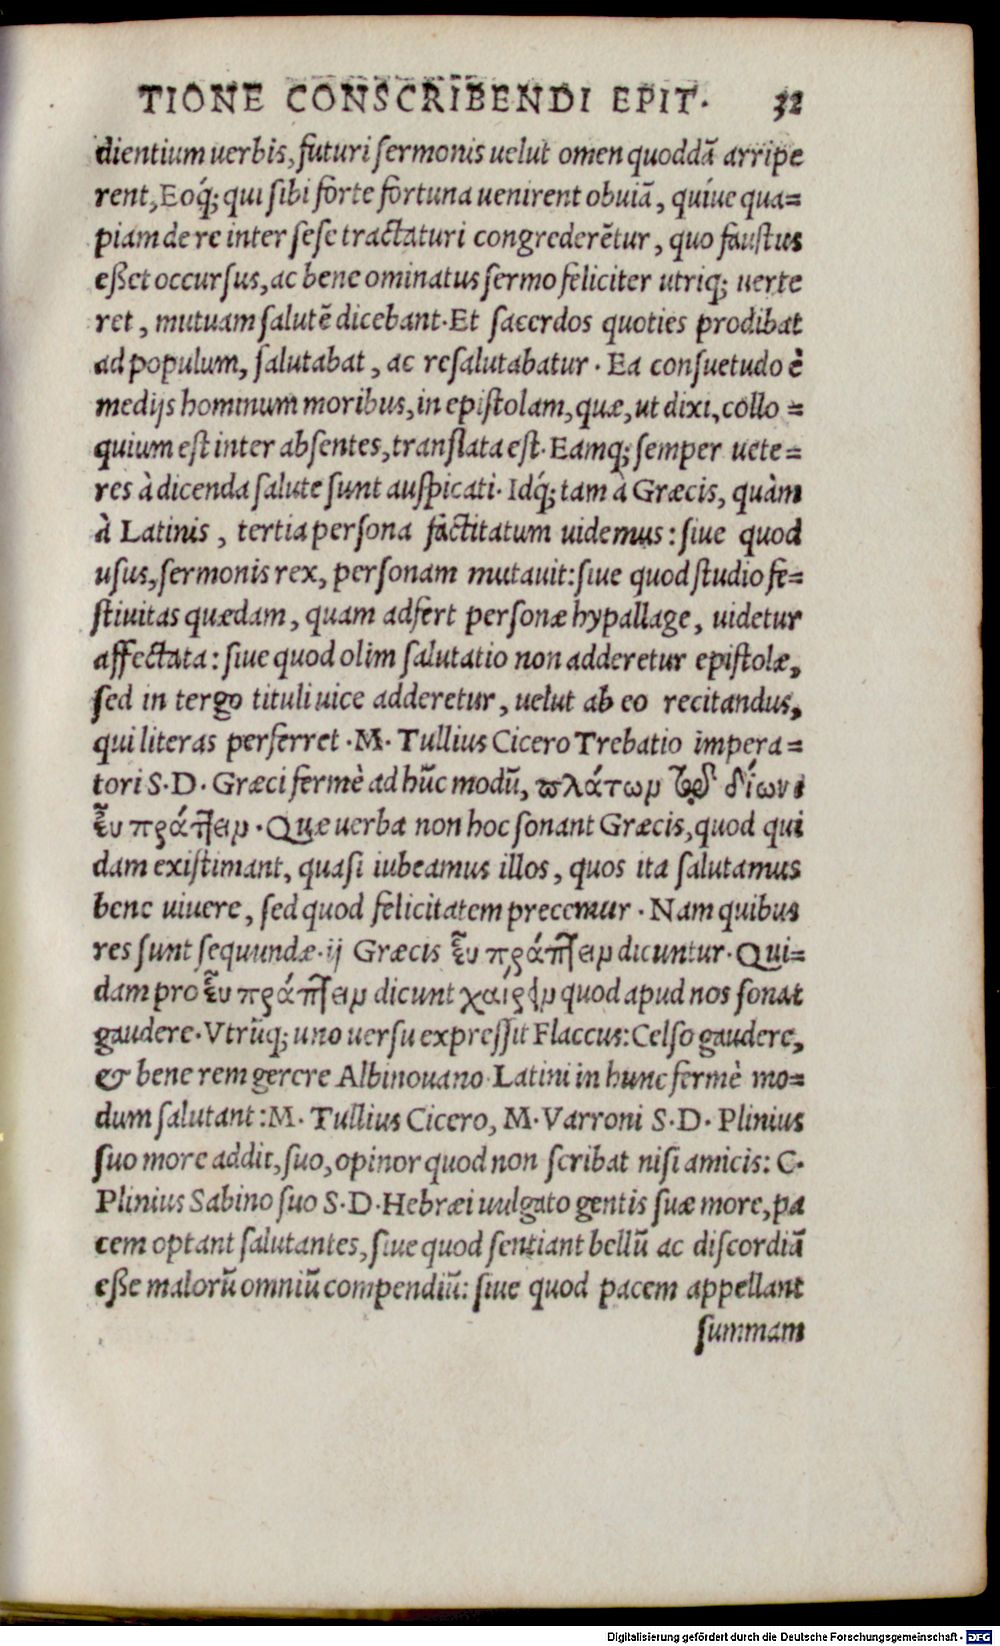 TIONE CONSCRIBENDI EPIT. 32
dientium uerbis, futuri sermonis uelut omen quoddã arripe
rent, Eoq́; qui sibi forte fortuna uenirent obuiã, quíue qua=
piam de re inter sese tractaturi congrederẽtur, quo faustus
eßet occursus, ac bene ominatus sermo feliciter utriq; uerte
ret, mutuam salutẽ dicebant. Et sacerdos quoties prodibat
ad populum, salutabat, ac resalutabatur. Ea consuetudo è
medijs hominum moribus, in epistolam, quæ, ut dixi, collo=
quium est inter absentes, translata est. Eamq; semper uete=
res à dicenda salute sunt auspicati. Idq́; tam à Græcis, quàm
à Latinis, tertia persona factitatum uidemus: siue quod
usus, sermonis rex, personam mutauit: siue quod studio fe=
stiuitas quædam, quam adfert personæ hypallage, uidetur
affectata: siue quod olim salutatio non adderetur epistolæ,
sed in tergo tituli uice adderetur, uelut ab eo recitandus,
qui literas perferret. M. Tullius Cicero Trebatio impera=
tori S. D. Græci fermè ad hũc modũ, πλάτων τῷ δίωνι
εὖ πράττειν. Quæ uerba non hoc sonant Græcis, quod qui
dam existimant, quasi iubeamus illos, quos ita salutamus
bene uiuere, sed quod felicitatem precemur. Nam quibus
res sunt sequundæ. ij Græcis εὖ πράττειν dicuntur. Qui=
dam pro εὖ πράττειν dicunt χαίρειν quod apud nos sonat
gaudere. Vtrũq; uno uersu expressit Flaccus: Celso gaudere,
& bene rem gerere Albinouano. Latini in hunc fermè mo=
dum salutant: M. Tullius Cicero, M. Varroni S. D. Plinius
suo more addit, suo, opinor quod non scribat nisi amicis: C.
Plinius Sabino suo S. D. Hebræi uulgato gentis suæ more, pa
cem optant salutantes, siue quod sentiant bellũ ac discordiã
eße malorũ omniũ compendiũ: siue quod pacem appellant
summam
Digitalisierung gefördert durch die Deutsche Forschungsgemeinschaft - DFG